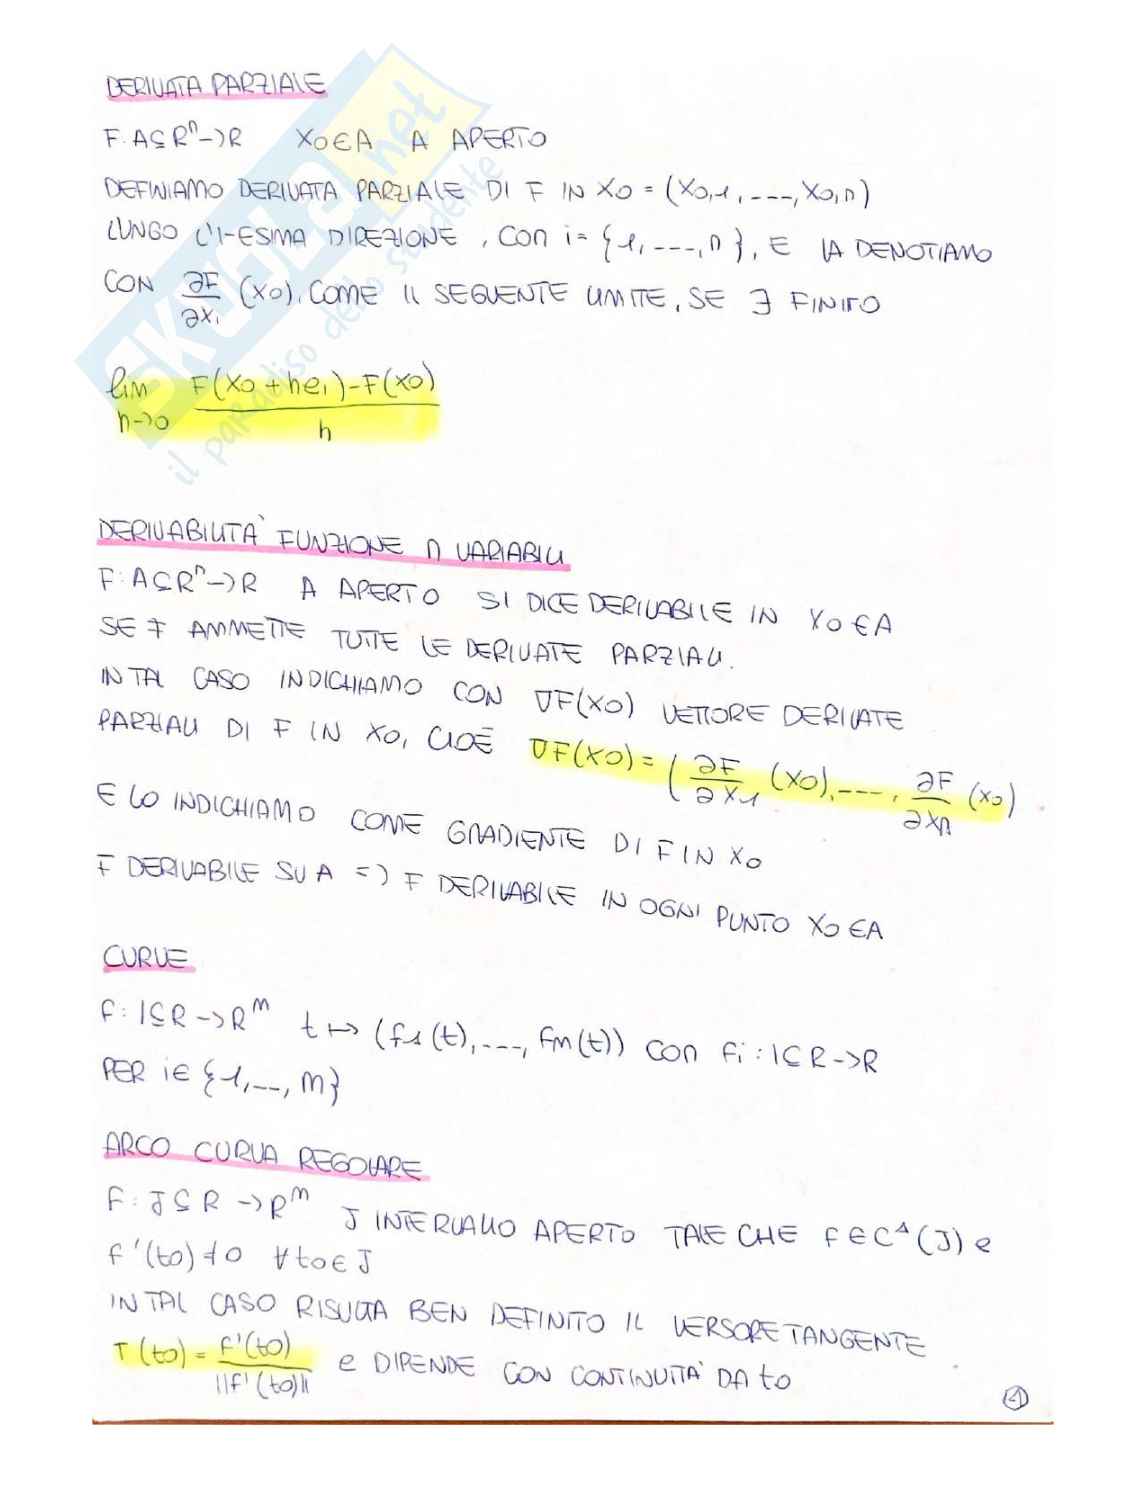 DERIVATA PARZIALE
F: A⊆Rⁿ->R X0∈A A APERTO
DEFINIAMO DERIVATA PARZIALE DI F IN X0 = (X0,1, ---, X0,n)
LUNGO L'I-ESIMA DIREZIONE, CON i= {1, ---, n}, E LA DENOTIAMO
CON ∂F/∂xi (X0), COME IL SEGUENTE LIMITE, SE ∃ FINITO
lim h->0 F(X0 + hei) - F(X0) / h
DERIVABILITÀ FUNZIONE N VARIABILI
F: A⊆Rⁿ->R A APERTO SI DICE DERIVABILE IN X0∈A
SE F AMMETTE TUTTE LE DERIVATE PARZIALI.
IN TAL CASO INDICHIAMO CON ∇F(X0) VETTORE DERIVATE
PARZIALI DI F IN X0, CIOÈ ∇F(X0) = (∂F/∂X1 (X0), ---, ∂F/∂Xn (X0)
E LO INDICHIAMO COME GRADIENTE DI F IN X0
F DERIVABILE SU A => F DERIVABILE IN OGNI PUNTO X0∈A
CURVE
F: I⊆R->Rᵐ t↦(f1(t), ---, fm(t)) CON fi: I⊆R->R
PER i∈{1, --, m}
ARCO CURVA REGOLARE
F: J⊆R->Rᵐ J INTERVALLO APERTO TALE CHE f∈C¹(J) e
f'(t0)≠0 ∀t0∈J
IN TAL CASO RISULTA BEN DEFINITO IL VERSORE TANGENTE
T(t0) = f'(t0)/||f'(t0)|| e DIPENDE CON CONTINUITÀ DA t0
1
SKUOLA.net
il paradiso dello studente